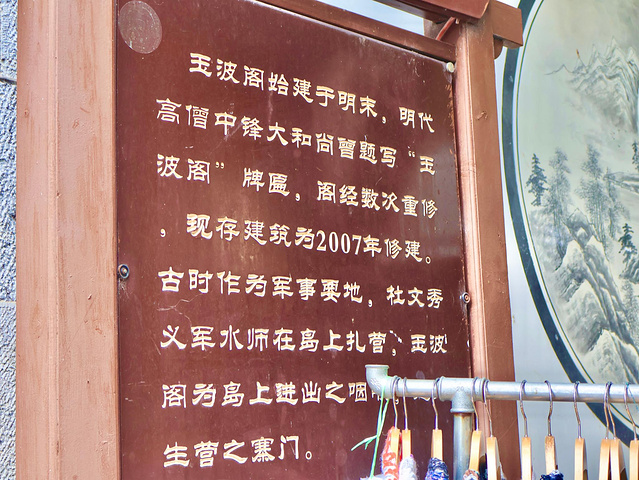 玉波阁始建于明末，明代
高僧中锋大和尚曾题写“玉
波阁”牌匾，阁经数次重修
，现存建筑为2007年修建。
古时作为军事要地，杜文秀
义军水师在岛上扎营，玉波
阁为岛上进出之咽
生营之寨门。